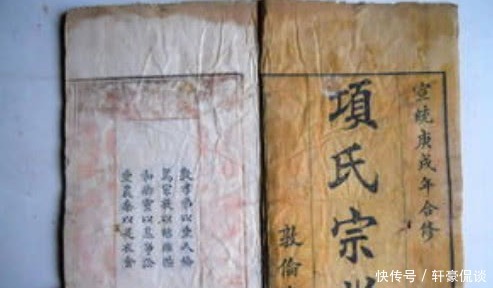 宣統庚戌年合修
項氏宗
敦倫
敦孝弟以重人倫
篤宗族以昭雍睦
和鄉黨以息爭訟
重農桑以足衣食
快传号 / 轩豪侃谈